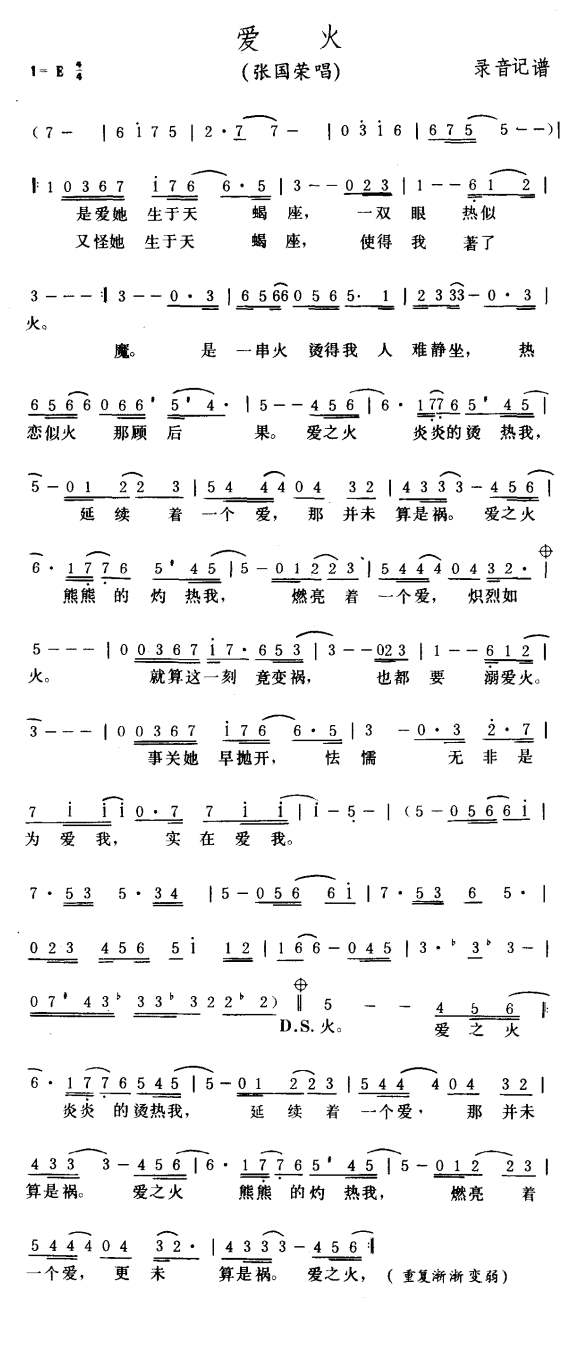 爱 火
(张国荣唱)
1=E 4/4
录音记谱
(7- |6 i 7 5 |2·7 7- |0 3 i 6 |6 7 5 5--)|
|:1 0 3 6 7 i 7 6 6·5 |3--0 2 3 |1--6 1 2 |
是爱她 生于天 蝎 座, 一双 眼 热似
又怪她 生于天 蝎 座, 使得 我 著了
3---:|3--0·3 |6 5 6 6 0 5 6 5· 1 |2 3 3 3-0·3 |
火。
魔。 是 一串火 烫得我 人 难静坐, 热
6 5 6 6 0 6 6 # 5 # 4· |5--4 5 6 |6· 1 7 7 6 5 # 4 5 |
恋似火 那顾 后 果。 爱之火 炎炎的烫 热我,
5-0 1 2 2 3 |5 4 4 4 0 4 3 2 |4 3 3 3-4 5 6 |
延续 着 一个 爱, 那 并未 算是祸。 爱之火
6· 1 7 7 6 5 # 4 5 |5-0 1 2 2 3 |5 4 4 4 0 4 3 2· |
熊熊 的 灼 热我, 燃亮 着 一个 爱, 炽烈如
5---|0 0 3 6 7 i 7·6 5 3 |3--0 2 3 |1--6 1 2 |
火。 就算这一刻 竟变祸, 也都 要 溺爱火。
3---|0 0 3 6 7 i 7 6 6·5 |3 -0·3 2·7 |
事关她 早抛开, 怯 懦 无 非 是
7 i i i 0·7 7 i i |i-5-|(5-0 5 6 6 i |
为 爱 我, 实 在 爱 我。
7·5 3 5·3 4 |5-0 5 6 6 i |7·5 3 6 5·|
0 2 3 4 5 6 5 i 1 2 |1 6 6-0 4 5 |3·b 3 b 3-|
0 7 # 4 3 b 3 3 b 3 2 2 b 2) ‖ 5 - - 4 5 6 |:
D.S.火。 爱 之 火
6· 1 7 7 6 5 4 5 |5-0 1 2 2 3 |5 4 4 4 0 4 3 2 |
炎炎 的烫热我, 延 续 着 一个 爱, 那 并未
4 3 3 3-4 5 6 |6· 1 7 7 6 5 # 4 5 |5-0 1 2 2 3 |
算是祸。 爱之火 熊熊 的灼 热我, 燃亮 着
5 4 4 4 0 4 3 2· |4 3 3 3-4 5 6 :|
一个 爱, 更 未 算是祸。 爱之火, (重复渐渐变弱)